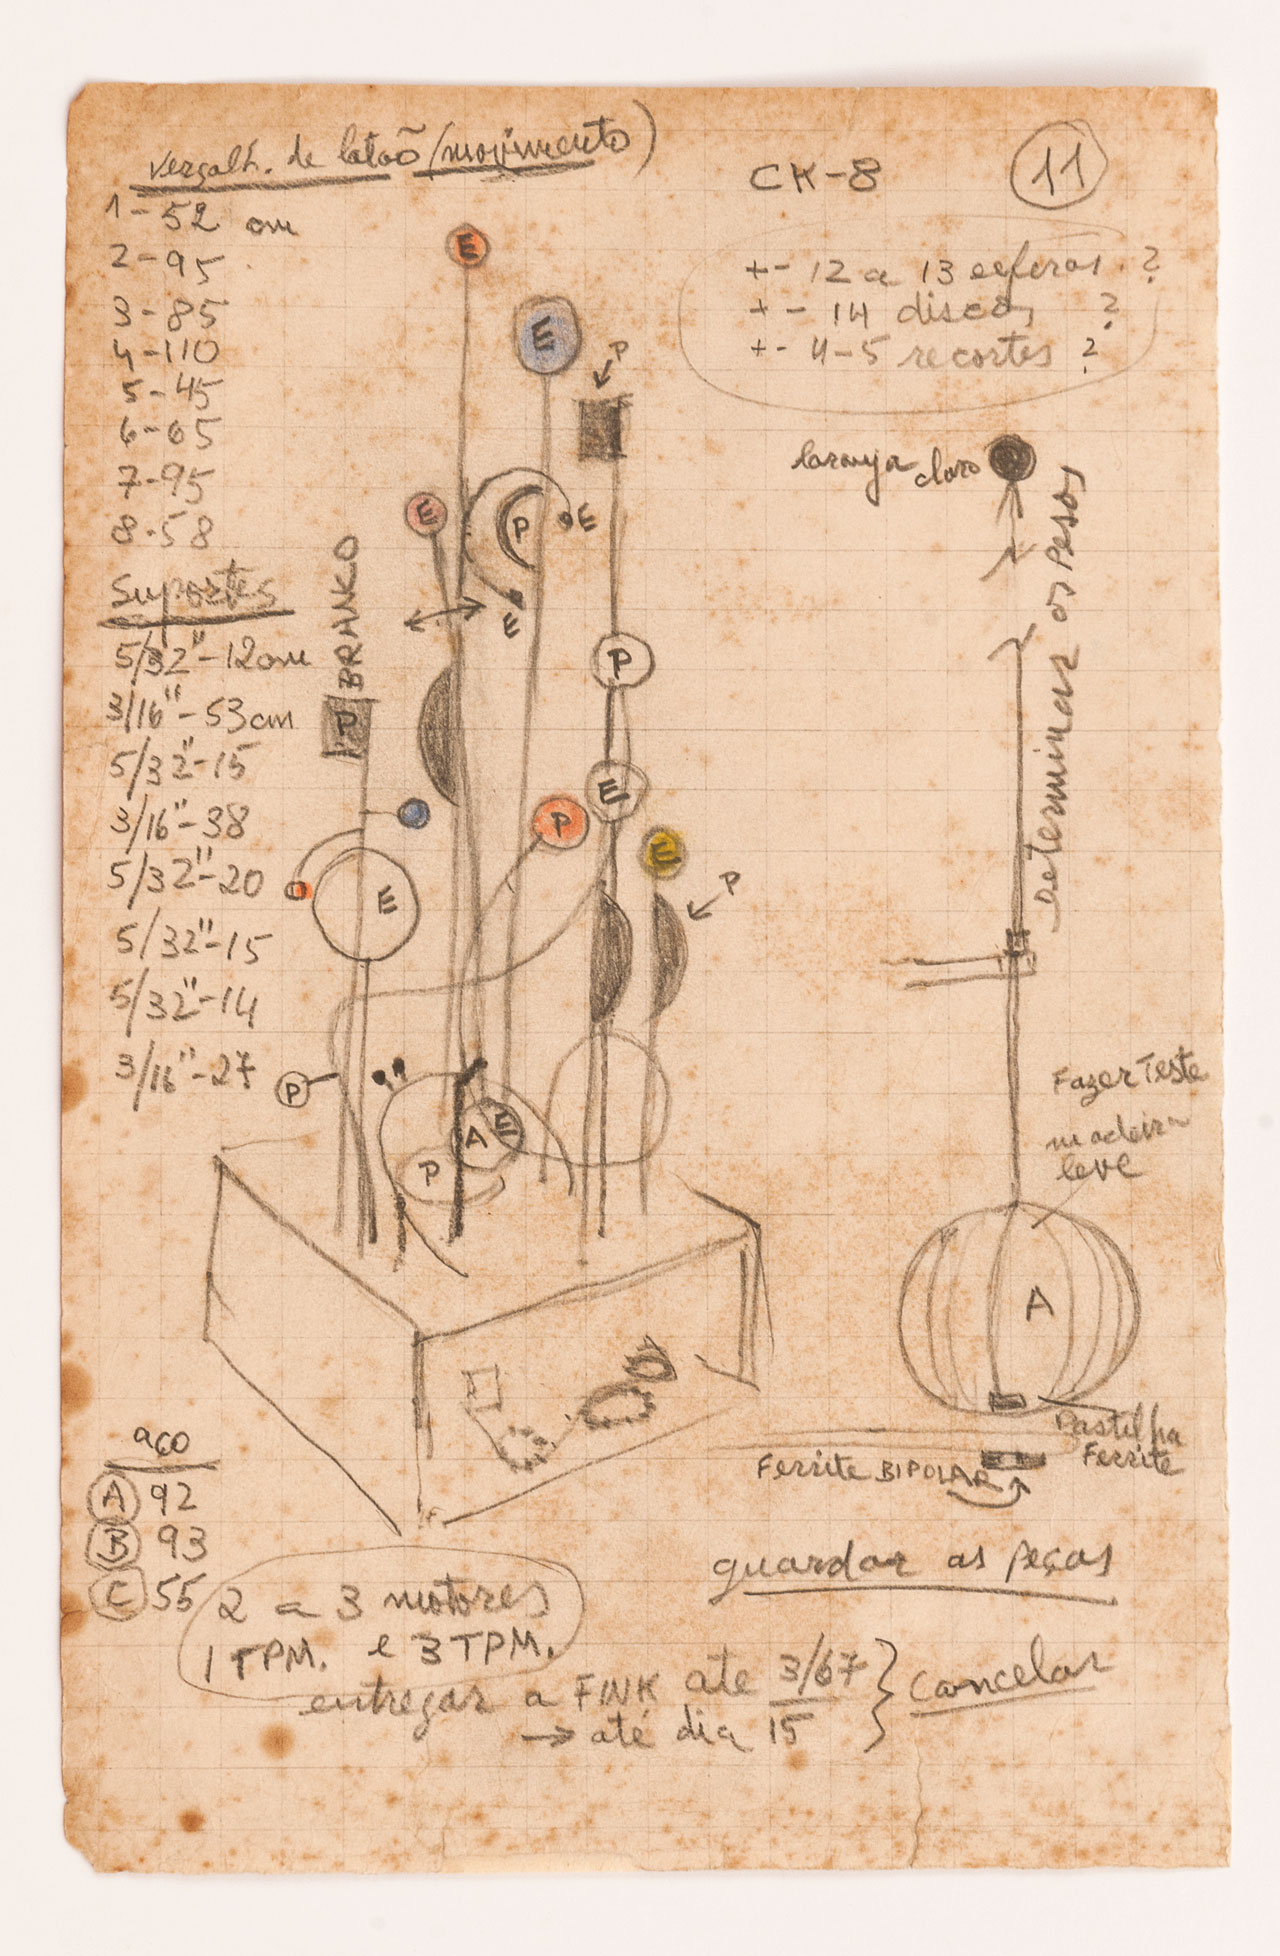 vergalh. de latão (movimento)
1-52 cm
2-95
3-85
4-110
5-45
6-65
7-95
8-58
Suportes
5/32"-12cm
3/16"-53cm
5/32"-15
3/16"-38
5/32"-20
5/32"-15
5/32"-14
3/16"-27
CK-8
11
+- 12 a 13 esferas ?
+- 14 discos ?
+- 4-5 recortes ?
E
E
P
E
P
E
E
BRANCO
P
P
E
P
E
E
P
P
A
E
P
laranja claro
Determinar os pesos
Fazer Teste
madeira
leve
A
Pastilha
Ferrite
Ferrite BIPOLAR
guardar as peças
aço
A 92
B 93
C 55
2 a 3 motores
1 TPM. e 3 TPM.
entregar a FINK até 3/67
→ até dia 15
Cancelar